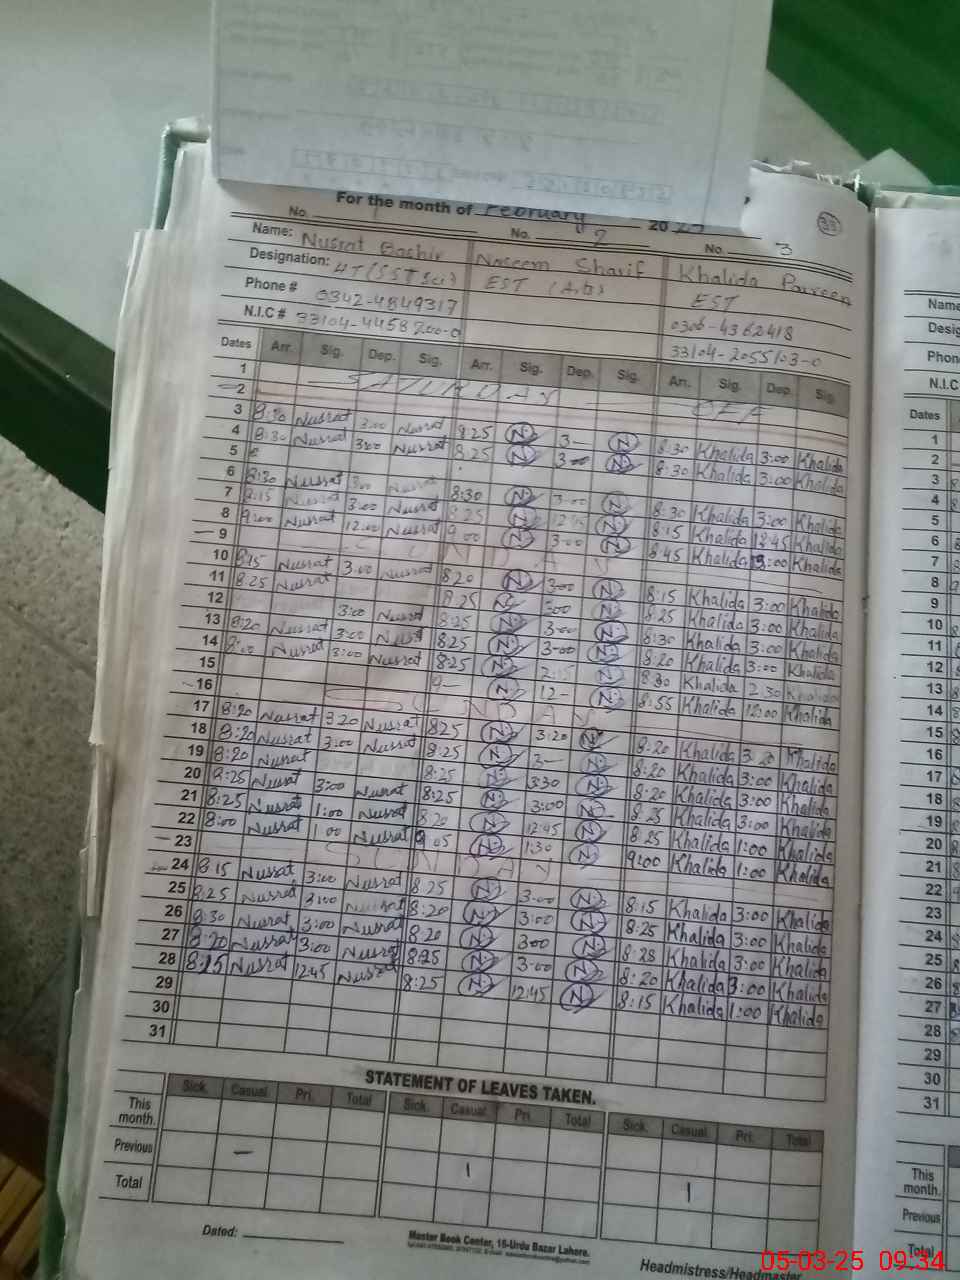 For the month of February 2025
33
No. 1 No. 2 No. 3
Name: Nusrat Bashir Naseem Sharif Khalida Parveen
Designation: EST (Arts) EST
Phone # 0342-4849317 0306-4362418
N.I.C # 33104-4458200-0 33104-2055103-0
Dates Arr. Sig. Dep. Sig. Arr. Sig. Dep. Sig. Arr. Sig. Dep. Sig.
1 SATURDAY OFF
2
3 8:30 Nusrat 3:00 Nusrat 8:25 N 3— N 8:30 Khalida 3:00 Khalida
4 8:30 Nusrat 3:00 Nusrat 8:25 N 3-00 N 8:30 Khalida 3:00 Khalida
5
6 8:30 Nusrat 3:00 Nusrat 8:30 N 3-00 N 8:30 Khalida 3:00 Khalida
7 8:15 Nusrat 3:00 Nusrat 8:25 N N 8:15 Khalida 12:45 Khalida
8 9:00 Nusrat 12:00 Nusrat 9:00 N 3-00 N 8:45 Khalida 3:00 Khalida
9 SUNDAY
10 8:15 Nusrat 3:00 Nusrat 8:20 N 3-00 N 8:15 Khalida 3:00 Khalida
11 8:25 Nusrat 8:25 N 3-00 N 8:25 Khalida 3:00 Khalida
12 3:00 Nusrat 8:25 N 3-00 N 8:30 Khalida 3:00 Khalida
13 8:20 Nusrat 3:00 Nusrat 8:25 N 3-00 N 8:20 Khalida 3:00 Khalida
14 8:00 Nusrat 3:00 Nusrat 8:25 N 2:15 N 8:30 Khalida 2:30 Khalida
15 9— N 12— N 8:55 Khalida 12:00 Khalida
16 SUNDAY
17 8:20 Nusrat 3:20 Nusrat 8:25 N 3:20 N 8:20 Khalida 3:20 Khalida
18 8:20 Nusrat 3:00 Nusrat 8:25 N 3— N 8:20 Khalida 3:00 Khalida
19 8:20 Nusrat 8:25 N 3:30 N 8:20 Khalida 3:00 Khalida
20 8:25 Nusrat 3:00 Nusrat 8:25 N 3:00 N 8:25 Khalida 3:00 Khalida
21 8:25 Nusrat 1:00 Nusrat 8:20 N 12:45 N 8:25 Khalida 1:00 Khalida
22 8:00 Nusrat 1:00 Nusrat 9:05 N 1:30 N 9:00 Khalida 1:00 Khalida
23 SUNDAY
24 8:15 Nusrat 3:00 Nusrat 8:25 N 3-00 N 8:15 Khalida 3:00 Khalida
25 8:25 Nusrat 3:00 Nusrat 8:20 N 3:00 N 8:25 Khalida 3:00 Khalida
26 8:30 Nusrat 3:00 Nusrat 8:20 N 3:00 N 8:28 Khalida 3:00 Khalida
27 8:20 Nusrat 3:00 Nusrat 8:25 N 3-00 N 8:20 Khalida 3:00 Khalida
28 8:25 Nusrat 12:45 Nusrat 8:25 N 12:45 N 8:15 Khalida 1:00 Khalida
29
30
31
STATEMENT OF LEAVES TAKEN.
Sick. Casual Pri. Total Sick. Casual Pri. Total Sick. Casual Pri. Total
This month.
Previous — 1 1
Total
Dated:
Master Book Center, 16-Urdu Bazar Lahore.
Headmistress/Headmaster
Name
Phone
N.I.C
Dates
1
2
3
4
5
6
7
8
9
10
11
12
13
14
15
16
17
18
19
20
21
22
23
24
25
26
27
28
29
30
31
This month.
Previous
Total
05-03-25 09:34